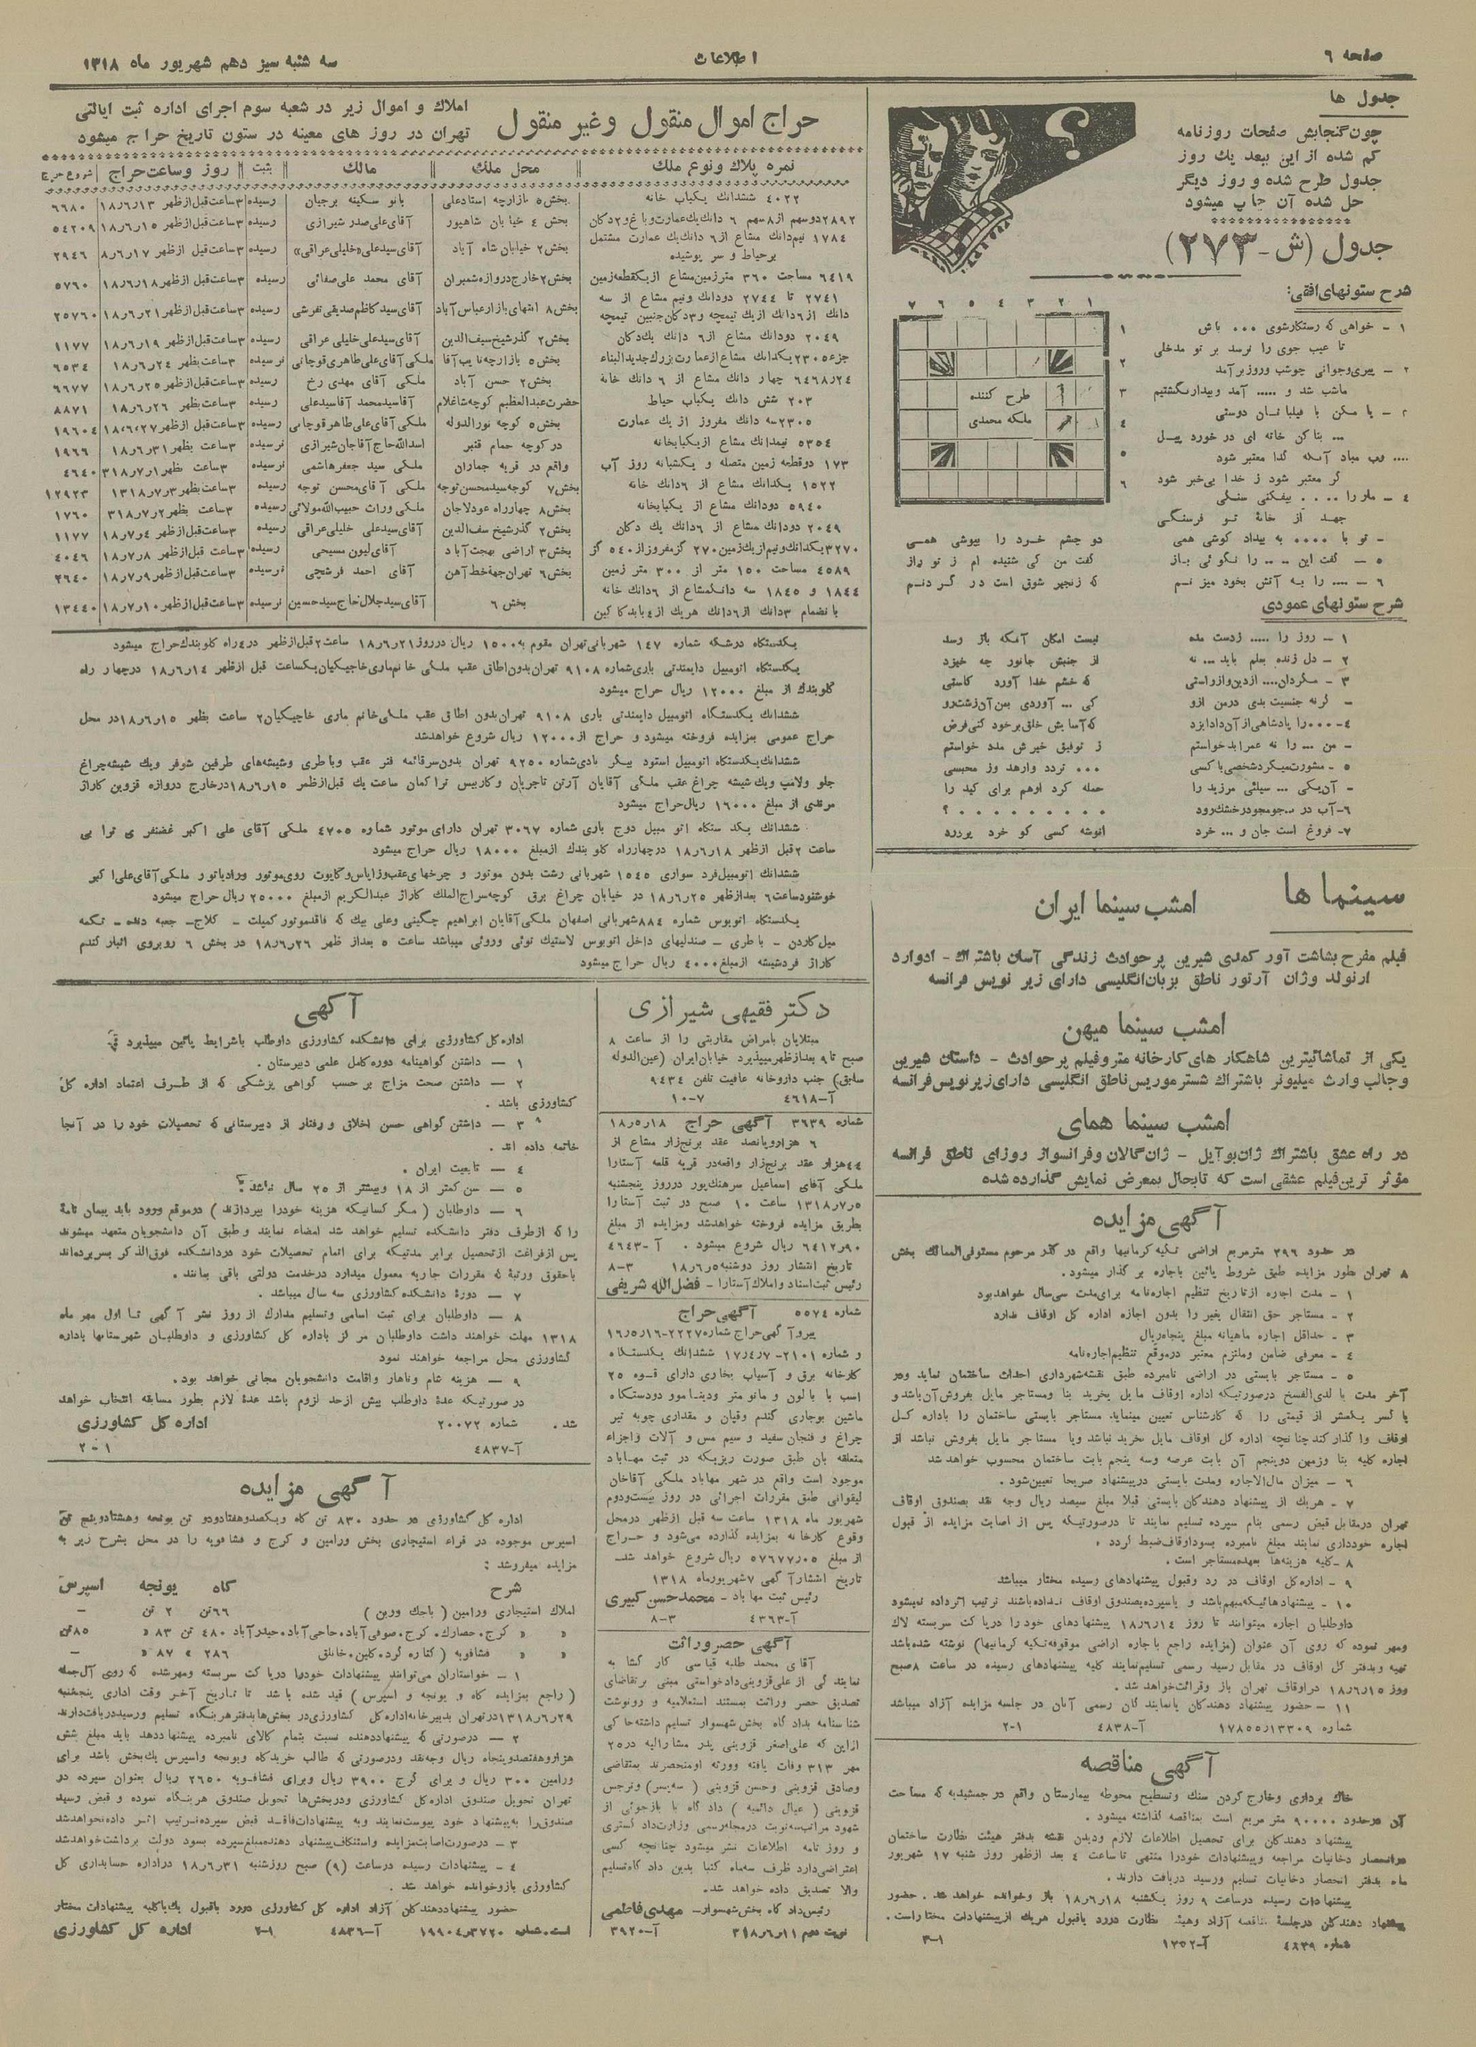 صفحه ۶
اطلاعات
سه شنبه سیزدهم شهریور ماه ۱۳۱۸
جدول ها
چون گنجایش صفحات روزنامه
کم شده از این ببعد یك روز
جدول طرح شده و روز دیگر
حل شده آن چاپ میشود
جدول (ش - ۲۷۳)
۱ ۲ ۳ ۴ ۵ ۶ ۷
طرح کننده
ملکه محمدی
شرح ستونهای افقی:
۱ - خواهی که رستگارشوی ... باش
تا عیب جوی را نرسد بر تو مدخلی
۲ - پیری وجوانی چوشب وروز برآمد
ماشب شد و ..... آمد وبیدار نگشتیم
۳ - یا مکن با فیلبانان دوستی
... بنا کن خانه ای در خورد پیل
.... مباد آنکه گدا معتبر شود
گر معتبر شود ز خدا بی خبر شود
۴ - مار را .... بیفکنی سنگی
جهد از خانهٔ تو فرسنگی
- تو با .... به بیداد کوشی همی
دو چشم خرد را بپوشی همی
۵ - گفت این ... را نگوئی باز
گفت من کی شنیده ام ز تو راز
۶ - .... را به آتش بخود میزنم
که زنجیر شوق است در گردنم
شرح ستونهای عمودی
۱ - روز را ..... زدست مده
نیست امکان آنکه باز رسد
۲ - دل زنده بعلم باید ... نه
از جنبش جانور چه خیزد
۳ - مگردان.... ازدین وازراستی
که خشم خدا آورد کاستی
- گرنه جنسیت بدی درمن ازو
کی ... آوردی بمن آن زشت رو
۴ - ....را پادشاهی از آن دادایزد
که آسایش خلق برخود کنی فرض
- من ... را نه عمرابدخواستم
ز توفیق خیرش مدد خواستم
۵ - مشورت میکردشخصی با کسی
... تردد وارهد وز محبسی
- آن یکی ... سیلئی مرزید را
حمله کرد اوهم برای کید را
۶- آب در ... جومجودرخشك رود
۷- فروغ است جان و ... خرد
انوشه کسی کو خرد پرورد
سینما ها
امشب سینما ایران
فیلم مفرح بشاشت آور کمدی شیرین پرحوادث زندگی آسان باشتراك - ادوارد
ارنولد وژان آرتور ناطق بزبان انگلیسی دارای زیر نویس فرانسه
امشب سینما میهن
یکی از تماشائیترین شاهکار های کارخانه متروفیلم پرحوادث - داستان شیرین
وجالب وارث میلیونر باشتراك شسترموریس ناطق انگلیسی دارای زیرنویس فرانسه
امشب سینما همای
در راه عشق باشتراك ژان بوآیل - ژان گالان وفرانسواز روزای ناطق فرانسه
مؤثر ترین فیلم عشقی است که تابحال بمعرض نمایش گذارده شده
آگهی مزایده
در حدود ۳۹۶ مترمربع اراضی تکیه کرمانیها واقع در گذر مرحوم مستوفی الممالك بخش
۸ تهران طور مزایده طبق شروط پائین باجاره بر گذار میشود.
۱ - مدت اجاره ازتاریخ تنظیم اجاره نامه برای مدت سی سال خواهدبود
۲ - مستاجر حق انتقال بغیر را بدون اجازه اداره کل اوقاف ندارد
۳ - حداقل اجاره ماهیانه مبلغ پنجاه ریال
۴ - معرفی ضامن وملتزم معتبر درموقع تنظیم اجاره نامه
۵ - مستاجر بایستی در اراضی نامبرده طبق نقشه شهرداری احداث ساختمان نماید ودر
آخر مدت یا لدی الفسخ درصورتیکه اداره اوقاف مایل بخرید بنا ومستاجر مایل بفروش آن باشد و
یا کسر یکعشر از قیمتی را که کارشناس تعیین مینماید. مستاجر بایستی ساختمان را باداره کل
اوقاف واگذار کند چنانچه اداره کل اوقاف مایل خرید نباشد ویا مستاجر مایل بفروش نباشد از
اجاره کلیه بنا وزمین دوپنجم آن بابت عرصه وسه پنجم بابت ساختمان محسوب خواهد شد
۶ - میزان مال الاجاره ومدت بایستی درپیشنهاد صریحا تعیین شود.
۷ - هریك از پیشنهاد دهندگان بایستی قبلا مبلغ سیصد ریال وجه نقد بصندوق اوقاف
تهران درمقابل قبض رسمی بنام سپرده تسلیم نمایند تا درصورتیکه پس از اصابت مزایده از قبول
اجاره خودداری نمایند مبلغ نامبرده بسوداوقاف ضبط گردد.
۸ - کلیه هزینه ها بعهده مستاجر است.
۹ - اداره کل اوقاف در رد وقبول پیشنهادهای رسیده مختار میباشد
۱۰ - پیشنهادهائیکه مبهم باشد و یاسپرده بصندوق اوقاف نداده باشند ترتیب اثرداده نمیشود
داوطلبان اجاره میتوانند تا روز ۱۴ر۶ر۱۸ پیشنهادهای خود را درپاکت سربسته لاك
ومهر نموده که روی آن عنوان (مزایده راجع باجاره اراضی موقوفه تکیه کرمانیها) نوشته شده باشد
تهیه وبدفتر کل اوقاف در مقابل رسید رسمی تسلیم نمایند کلیه پیشنهادهای رسیده در ساعت ۸ صبح
روز ۱۵ر۶ر۱۸ دراوقاف تهران باز وقرائت خواهد شد.
۱۱ - حضور پیشنهاد دهندگان یانمایندگان رسمی آنان در جلسه مزایده آزاد میباشد
شماره ۱۳۳۰۹ر۱۷۸۵۵ آ-۴۸۳۸ ۱-۲
آگهی مناقصه
خاك برداری وخارج کردن سنك وتسطیح محوطه بیمارستان واقع در جمشیدیه که مساحت
آن درحدود ۹۰۰۰۰ متر مربع است بمناقصه گذاشته میشود.
پیشنهاد دهندگان برای تحصیل اطلاعات لازم ودیدن نقشه بدفتر هیئت نظارت ساختمان
درانحصار دخانیات مراجعه وپیشنهادات خودرا منتهی تا ساعت ۴ بعد ازظهر روز شنبه ۱۷ شهریور
ماه بدفتر انحصار دخانیات تسلیم ورسید دریافت دارند.
پیشنهادات رسیده درساعت ۹ روز یکشنبه ۱۸ر۶ر۱۸ باز وخوانده خواهد شد. حضور
پیشنهاد دهندگان درجلسهٔ مناقصه آزاد وهیئت نظارت دررد یاقبول هریك ازپیشنهادات مختار است.
شماره ۴۸۳۹ ۱-۳
حراج اموال منقول وغیر منقول
املاك و اموال زیر در شعبه سوم اجرای اداره ثبت ایالتی
تهران در روز های معینه در ستون تاریخ حراج میشود
نمره پلاك ونوع ملك | محل ملك | مالك | بثبت | روز وساعت حراج | شروع حراج
۴۰۲۲ ششدانك یکباب خانه | بخش۵ بازارچه استادعلی | بانو سکینه برجیان | رسیده | ۳ساعت قبل ازظهر ۱۳ر۶ر۱۸ | ۶۶۸۰
۲۸۹۲دوسهم از۸سهم ۶ دانك یك عمارت وباغ و۲دکان | بخش ۴ خیابان شاهپور | آقای علی صدر شیرازی | رسیده | ۳ساعت قبل ازظهر ۱۵ر۶ر۱۸ | ۵۴۲۰۹
۱۷۸۴ نیم دانك مشاع از۶ دانك یك عمارت مشتمل | بخش۲ خیابان شاه آباد | آقای سیدعلی«خلیلی عراقی» | رسیده | ۳ساعت قبل ازظهر ۱۷ر۶ر۱۸ | ۲۹۴۶
برحیاط و سر پوشیده
۶۴۱۹ مساحت ۳۶۰ مترزمین مشاع ازیکقطعه زمین | بخش۲خارج دروازه شمیران | آقای محمد علی صفائی | رسیده | ۳ساعت قبل ازظهر ۱۸ر۶ر۱۸ | ۵۷۶۰
۲۷۴۱ تا ۲۷۴۴ دودانك ونیم مشاع از سه | بخش ۸ انتهای بازارعباس آباد | آقای سیدکاظم صدیقی تفرشی | رسیده | ۳ساعت قبل ازظهر ۲۱ر۶ر۱۸ | ۲۵۷۶۰
دانك از۶دانك ازیك تیمچه و۳دکان جنبین تیمچه
۲۰۴۹ دودانك مشاع از۶ دانك یك دکان | بخش ۲ گذرشیخ سیف الدین | آقای سیدعلی خلیلی عراقی | رسیده | ۳ساعت قبل ازظهر ۱۹ر۶ر۱۸ | ۱۱۷۷
جزء ۲۳۰۵یکدانك مشاع ازعمارت بزرك جدیدالبناء | بخش ۵ بازارچه نایب آقا | ملکی آقای علی طاهری قوچانی | نرسیده | ۳ساعت بظهر ۲۴ر۶ر۱۸ | ۶۵۳۴
۲۴ر۶۴۶۸ چهار دانك مشاع از ۶ دانك خانه | بخش ۲ حسن آباد | ملکی آقای مهدی رخ | رسیده | ۳ساعت قبل ازظهر ۲۵ر۶ر۱۸ | ۶۶۷۷
۲۰۳ شش دانك یکباب حیاط | حضرت عبدالعظیم کوچه شاغلام | آقاسیدمحمد آقاسیدعلی | رسیده | ۳ساعت بظهر ۲۶ر۶ر۱۸ | ۸۸۷۱
۲۳۰۵سه دانك مفروز از یك عمارت | بخش ۵ کوچه نورالدوله | ملکی آقای علی طاهر قوچانی | رسیده | ۳ساعت قبل ازظهر ۲۷ر۶ر۱۸ | ۱۹۶۰۴
۵۳۵۴ نیمدانك مشاع ازیکبابخانه | در کوچه حمام قنبر | اسدالله حاج آقاجان شیرازی | نرسیده | ۳ساعت بظهر ۳۱ر۶ر۱۸ | ۱۹۶۶
۱۷۳ دوقطعه زمین متصله و یکشبانه روز آب | واقع در قریه جماران | ملکی سید جعفر هاشمی | نرسیده | ۳ساعت بظهر ۱ر۷ر۳۱۸ | ۴۶۴۰
۱۵۲۲ یکدانك مشاع از ۶دانك خانه | بخش۷ کوچه سیدمحسن توجه | ملکی آقای محسن توجه | رسیده | ۳ساعت بظهر ۳ر۷ر۱۳۱۸ | ۱۲۹۲۳
۵۹۴۰ دودانك مشاع از یکبابخانه | بخش ۸ چهارراه عودلاجان | ملکی وراث حبیب الله مولائی | رسیده | ۳ساعت بظهر ۲ر۷ر۳۱۸ | ۱۷۶۰
۲۰۴۹ دودانك مشاع از ۶دانك یك دکان | بخش۲ گذرشیخ سف الدین | آقای سیدعلی خلیلی عراقی | رسیده | ۳ساعت قبل ازظهر ۴ر۷ر۱۸ | ۱۱۷۷
۳۲۷۰یکدانك ونیم ازیك زمین ۲۷۰ گزمفروزاز۵۴۰ گز | بخش۳ اراضی بهجت آباد | آقای لیون مسیحی | رسیده | ۳ساعت قبل ازظهر ۸ر۷ر۱۸ | ۴۰۴۶
۴۵۸۹ مساحت ۱۵۰ متر از ۳۰۰ متر زمین | بخش۶ تهران جههٔ خط آهن | آقای احمد فرشچی | نرسیده | ۳ساعت قبل ازظهر ۹ر۷ر۱۸ | ۲۶۴۰
۱۸۴۴ و ۱۸۴۵ سه دانگمشاع از ۶دانك خانه | بخش ۶ | آقای سیدجلال حاج سیدحسین | نرسیده | ۳ساعت قبل ازظهر ۱۰ر۷ر۱۸ | ۱۳۴۴۰
با نضمام ۳دانك از۶دانك هریك از۴بابدکاکین
یکدستگاه درشکه شماره ۱۴۷ شهربانی تهران مقوم به ۱۵۰۰ ریال درروز ۲۱ر۶ر۱۸ ساعت ۲قبل ازظهر در۴راه گلوبندك حراج میشود
یکدستگاه اتومبیل دایمندتی باری شماره ۹۱۰۸ تهران بدون اطاق عقب ملکی خانم ماری خاجیکیان یکساعت قبل ازظهر ۱۴ر۶ر۱۸ درچهار راه
گلوبندك از مبلغ ۱۲۰۰۰ ریال حراج میشود
ششدانك یکدستگاه اتومبیل دایمندتی باری ۹۱۰۸ تهران بدون اطاق عقب ملکی خانم ماری خاچیکیان ۲ ساعت بظهر ۱۵ر۶ر۱۸ در محل
حراج عمومی بمزایده فروخته میشود و حراج از ۱۲۰۰۰ ریال شروع خواهدشد
ششدانك یکدستگاه اتومبیل استود بیگر بادی شماره ۹۲۵۰ تهران بدون سرقائمه فنر عقب وباطری وشیشه های طرفین شوفر ویك شیشه چراغ
جلو ولامپ ویك شیشه چراغ عقب ملکی آقایان آرتن تاجریان وکاربیس تراکمان ساعت یك قبل ازظهر ۱۵ر۶ر۱۸ درخارج دروازه قزوین گاراژ
مرتضی از مبلغ ۱۶۰۰۰ ریال حراج میشود
ششدانك یکدستگاه اتومبیل دوج باری شماره ۳۰۶۷ تهران دارای موتور شماره ۴۷۰۵ ملکی آقای علی اکبر غضنفری ترابی
ساعت ۲قبل ازظهر ۱۸ر۶ر۱۸ درچهارراه گلوبندك ازمبلغ ۱۸۰۰۰ ریال حراج میشود
ششدانك اتومبیل فرد سواری ۱۵۴۵ شهربانی رشت بدون موتور و چرخهای عقب وزاپاس وکاپوت روی موتور ورادیاتور ملکی آقای علی اکبر
خوشنودساعت ۶ بعدازظهر ۲۵ر۶ر۱۸ در خیابان چراغ برق کوچه سراج الملك گاراژ عبدالکریم ازمبلغ ۲۵۰۰۰ ریال حراج میشود
یکدستگاه اتوبوس شماره ۸۸۴ شهربانی اصفهان ملکی آقایان ابراهیم چگینی وعلی بیك که فاقد موتور کمپلت - کلاج - جعبه دنده - تکمه
میل گاردن - باطری - صندلیهای داخل اتوبوس لاستیك توئی وروئی میباشد ساعت ۵ بعداز ظهر ۲۶ر۶ر۱۸ در بخش ۶ روبروی انبار گندم
گاراژ فردشیشه ازمبلغ ۴۰۰۰ ریال حراج میشود
دکتر فقیهی شیرازی
مبتلایان بامراض مقاربتی را از ساعت ۸
صبح تا ۹ بعدازظهر میپذیرد خیابان ایران (عین الدوله
سابق) جنب داروخانه عافیت تلفن ۹۴۳۴
آ-۴۶۱۸ ۷-۱۰
شماره ۳۶۳۹ آگهی حراج ۱۸ر۵ر۱۸
۶ هزاروپانصد عقد برنج زار مشاع از
۴۴هزار عقد برنج زار واقعه در قریه قلعه آستارا
ملکی آقای اسماعیل سرهنك پور درروز پنجشنبه
۵ر۷ر۱۳۱۸ ساعت ۱۰ صبح در ثبت آستارا
بطریق مزایده فروخته خواهدشد ومزایده از مبلغ
۹۰ر۶۴۱۲ ریال شروع میشود. آ-۴۶۴۳
تاریخ انتشار روز دوشنبه ۵ر۶ر۱۸ ۳-۸
رئیس ثبت اسناد واملاك آستارا - فضل الله شریفی
شماره ۵۵۷۴ آگهی حراج
پیرو آگهی حراج شماره ۲۲۲۷-۱۶ر۵ر۱۶
و شماره ۲۱۰۱-۷ر۴ر۱۷ ششدانك یکدستگاه
کارخانه برق و آسیاب بخاری دارای قوه ۲۵
اسب با بالون و مانومتر ودینامو ودودستگاه
ماشین بوجاری گندم وقپان و مقداری چوبه تیر
چراغ و فنجان سفید و سیم مس و آلات واجزاء
متعلقه بان طبق صورت ریزیکه در ثبت مهاباد
موجود است واقع در شهر مهاباد ملکی آقاخان
لیقوانی طبق مقررات اجرائی در روز بیست ودوم
شهریور ماه ۱۳۱۸ ساعت سه قبل ازظهر درمحل
وقوع کارخانه بمزایده گذارده میشود و حراج
از مبلغ ۰۵ر۵۷۶۷۷ ریال شروع خواهد شد.
تاریخ انتشار آگهی ۷شهریورماه ۱۳۱۸
رئیس ثبت مهاباد - محمدحسن کبیری
آ-۴۳۶۳ ۳-۸
آگهی حصر وراثت
آقای محمد طلبه قیاسی کار گشا به
نمایندگی از علی قزوینی دادخواستی مبنی بر تقاضای
تصدیق حصر وراثت بمستند استعلامیه و رونوشت
شناسنامه بداد گاه بخش شهسوار تسلیم داشته حاکی
ازاین که علی اصغر قزوینی پدر مشارالیه در۲۵
مهر ۳۱۳ وفات یافته وورثه اومنحصرند بمتقاضی
وصادق قزوینی وحسن قزوینی (سه پسر) ونرجس
قزوینی (عیال دائمیه) دادگاه با بازجوئی از
شهود مراتب سه نوبت درمجله رسمی وزارت دادگستری
و روزنامه اطلاعات نشر میشود چنانچه کسی
اعتراضی دارد ظرف سه ماه کتبا بدین داد گاه تسلیم
والا تصدیق داده خواهد شد.
رئیس دادگاه بخش شهسوار - مهدی فاطمی
نوبت دوم ۱۱ر۶ر۳۱۸ آ-۳۹۲۰
آگهی
اداره کل کشاورزی برای دانشکده کشاورزی داوطلب باشرایط پائین میپذیرد
۱ - داشتن گواهینامه دوره کامل علمی دبیرستان.
۲ - داشتن صحت مزاج برحسب گواهی پزشکی که از طرف اعتماد اداره کل
کشاورزی باشد.
۳ - داشتن گواهی حسن اخلاق و رفتار از دبیرستانی که تحصیلات خود را در آنجا
خاتمه داده اند.
۴ - تابعیت ایران.
۵ - سن کمتر از ۱۸ وبیشتر از ۲۵ سال نباشد.
۶ - داوطلبان (مگر کسانیکه هزینه خودرا بپردازند) درموقع ورود باید پیمان نامهٔ
را که ازطرف دفتر دانشکده تسلیم خواهد شد امضاء نمایند وطبق آن دانشجویان متعهد میشوند
پس ازفراغت ازتحصیل برابر مدتیکه برای اتمام تحصیلات خود دردانشکده فوق الذکر بسر برده اند
باحقوق ورتبهٔ که مقررات جاریه معمول میدارد درخدمت دولتی باقی بمانند.
۷ - دورهٔ دانشکده کشاورزی سه سال میباشد.
۸ - داوطلبان برای ثبت اسامی وتسلیم مدارك از روز نشر آگهی تا اول مهر ماه
۱۳۱۸ مهلت خواهند داشت داوطلبان مرکز باداره کل کشاورزی و داوطلبان شهرستانها باداره
کشاورزی محل مراجعه خواهند نمود
۹ - هزینه شام وناهار واقامت دانشجویان مجانی خواهد بود.
درصورتیکه عدهٔ داوطلب بیش ازحد لزوم باشد عدهٔ لازم بطور مسابقه انتخاب خواهد
شد. شماره ۲۰۰۷۲ اداره کل کشاورزی
آ-۴۸۳۷ ۱-۲
آگهی مزایده
اداره کل کشاورزی در حدود ۸۳۰ تن کاه ویکصدوهفتادودو تن یونجه وهشتادوپنج تن
اسپرس موجوده در قراء استیجاری بخش ورامین و کرج و فشافویه را در محل بشرح زیر به
مزایده میفروشد:
شرح کاه یونجه اسپرس
املاك استیجاری ورامین (باجك ورین) ۶۶تن ۲ تن -
» » کرج. حصارك. کرج. صوفی آباد. حاجی آباد. حیدرآباد ۴۸۰ تن ۸۳ » ۸۵تن
» » فشافویه (کناره گرد. کلین. خانلق ۲۸۶ » ۸۷ » -
۱ - خواستاران می توانند پیشنهادات خودرا درپاکت سربسته ومهرشده که روی آن جمله
(راجع بمزایده کاه و یونجه و اسپرس) قید شده باشد تا تاریخ آخر وقت اداری پنجشنبه
۲۹ر۶ر۱۳۱۸ در تهران بدبیرخانه اداره کل کشاورزی در بخش ها بدفتر هر بنگاه تسلیم ورسید دریافت دارند
۲ - درصورتی که پیشنهاددهنده نسبت بتمام کالای نامبرده پیشنهاددهد باید مبلغ شش
هزاروهفتصدوپنجاه ریال وجه نقد ودرصورتی که طالب خرید کاه ویونجه واسپرس یك بخش باشد برای
ورامین ۳۰۰ ریال و برای کرج ۳۹۰۰ ریال وبرای فشافویه ۲۶۵۰ ریال بعنوان سپرده در
تهران تحویل صندوق اداره کل کشاورزی ودربخش ها تحویل صندوق هر بنگاه نموده و قبض رسید
صندوق را به پیشنهاد خود پیوست نمایند وبه پیشنهادات فاقد قبض سپرده ترتیب اثر داده نخواهدشد
۳ - درصورت اصابت مزایده واستنکاف پیشنهاد دهنده مبلغ سپرده بسود دولت برداشت خواهدشد
۴ - پیشنهادات رسیده درساعت (۹) صبح روزشنبه ۳۱ر۶ر۱۸ دراداره حسابداری کل
کشاورزی بازوخوانده خواهد شد.
حضور پیشنهاددهندگان آزاد اداره کل کشاورزی دررد یاقبول یك یاکلیه پیشنهادات مختار
است. شماره ۳۷۲۰ر۱۹۹۰۴ آ-۴۸۳۶ ۱-۲ اداره کل کشاورزی